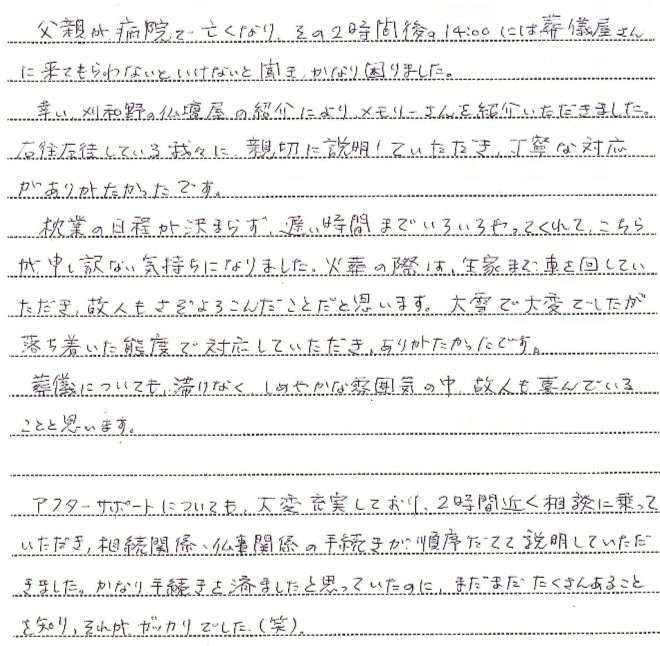 父親が病院で亡くなり、その2時間後の14:00には葬儀屋さん
に来てもらわないといけないと聞き、かなり困りました。
幸い、刈和野の仏壇屋の紹介によりメモリーさんを紹介いただきました。
右往左往している我々に、親切に説明していただき、丁寧な対応
がありがたかったです。
枕業の日程が決まらず、遅い時間までいろいろやってくれて、こちら
が申し訳ない気持ちになりました。火葬の際は、生家まで車を回してい
ただき、故人もさぞよろこんだことだと思います。大雪で大変でしたが
落ち着いた態度で対応していただき、ありがたかったです。
葬儀についても、滞りなく しめやかな雰囲気の中、故人も喜んでいる
ことと思います。
アフターサポートについても、大変充実しており、2時間近く相談に乗って
いただき、相続関係、仏事関係の手続きが順序だてて説明していただ
きました。かなり手続きを済ましたと思っていたのに、まだまだたくさんあること
を知り、それが、ガッカリでした(笑)。